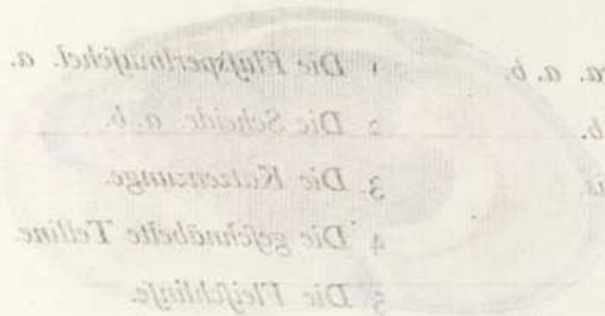 1 Die Flußperlmuschel. a.
2 Die Scheide. a. b.
3. Die Katzenzunge.
4 Die geschnäbelte Telline.
5 Die Fleischlinse.
a. b.
b.